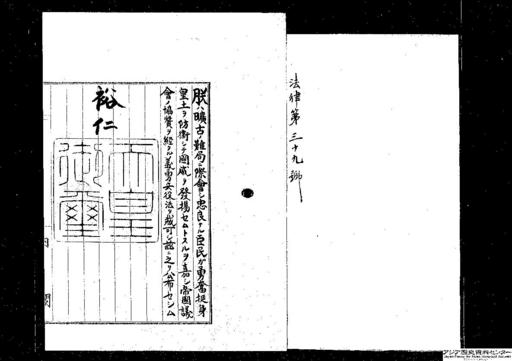 法律第三十九號
朕ハ曠古ノ難局ニ際會シ忠良ナル臣民ガ勇奮挺身
皇土ヲ防衛シテ國威ヲ發揚セムトスルヲ嘉シ帝國議
會ノ協賛ヲ經タル義勇兵役法ヲ裁可シ茲ニ之ヲ公布セシム
裕仁
天皇
御璽
アジア歴史資料センター